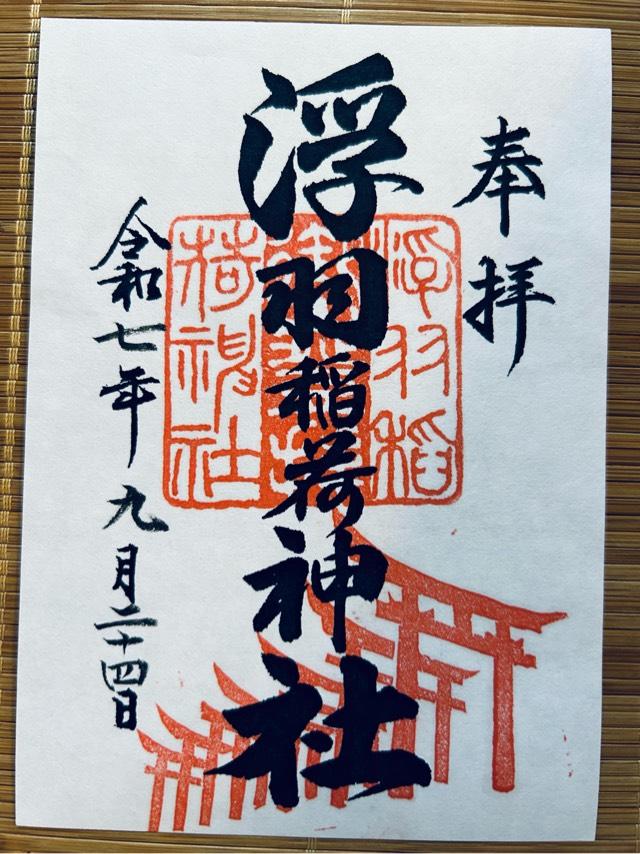 奉拝
浮羽稲荷神社
浮羽稲
荷神社
令和七年九月二十四日